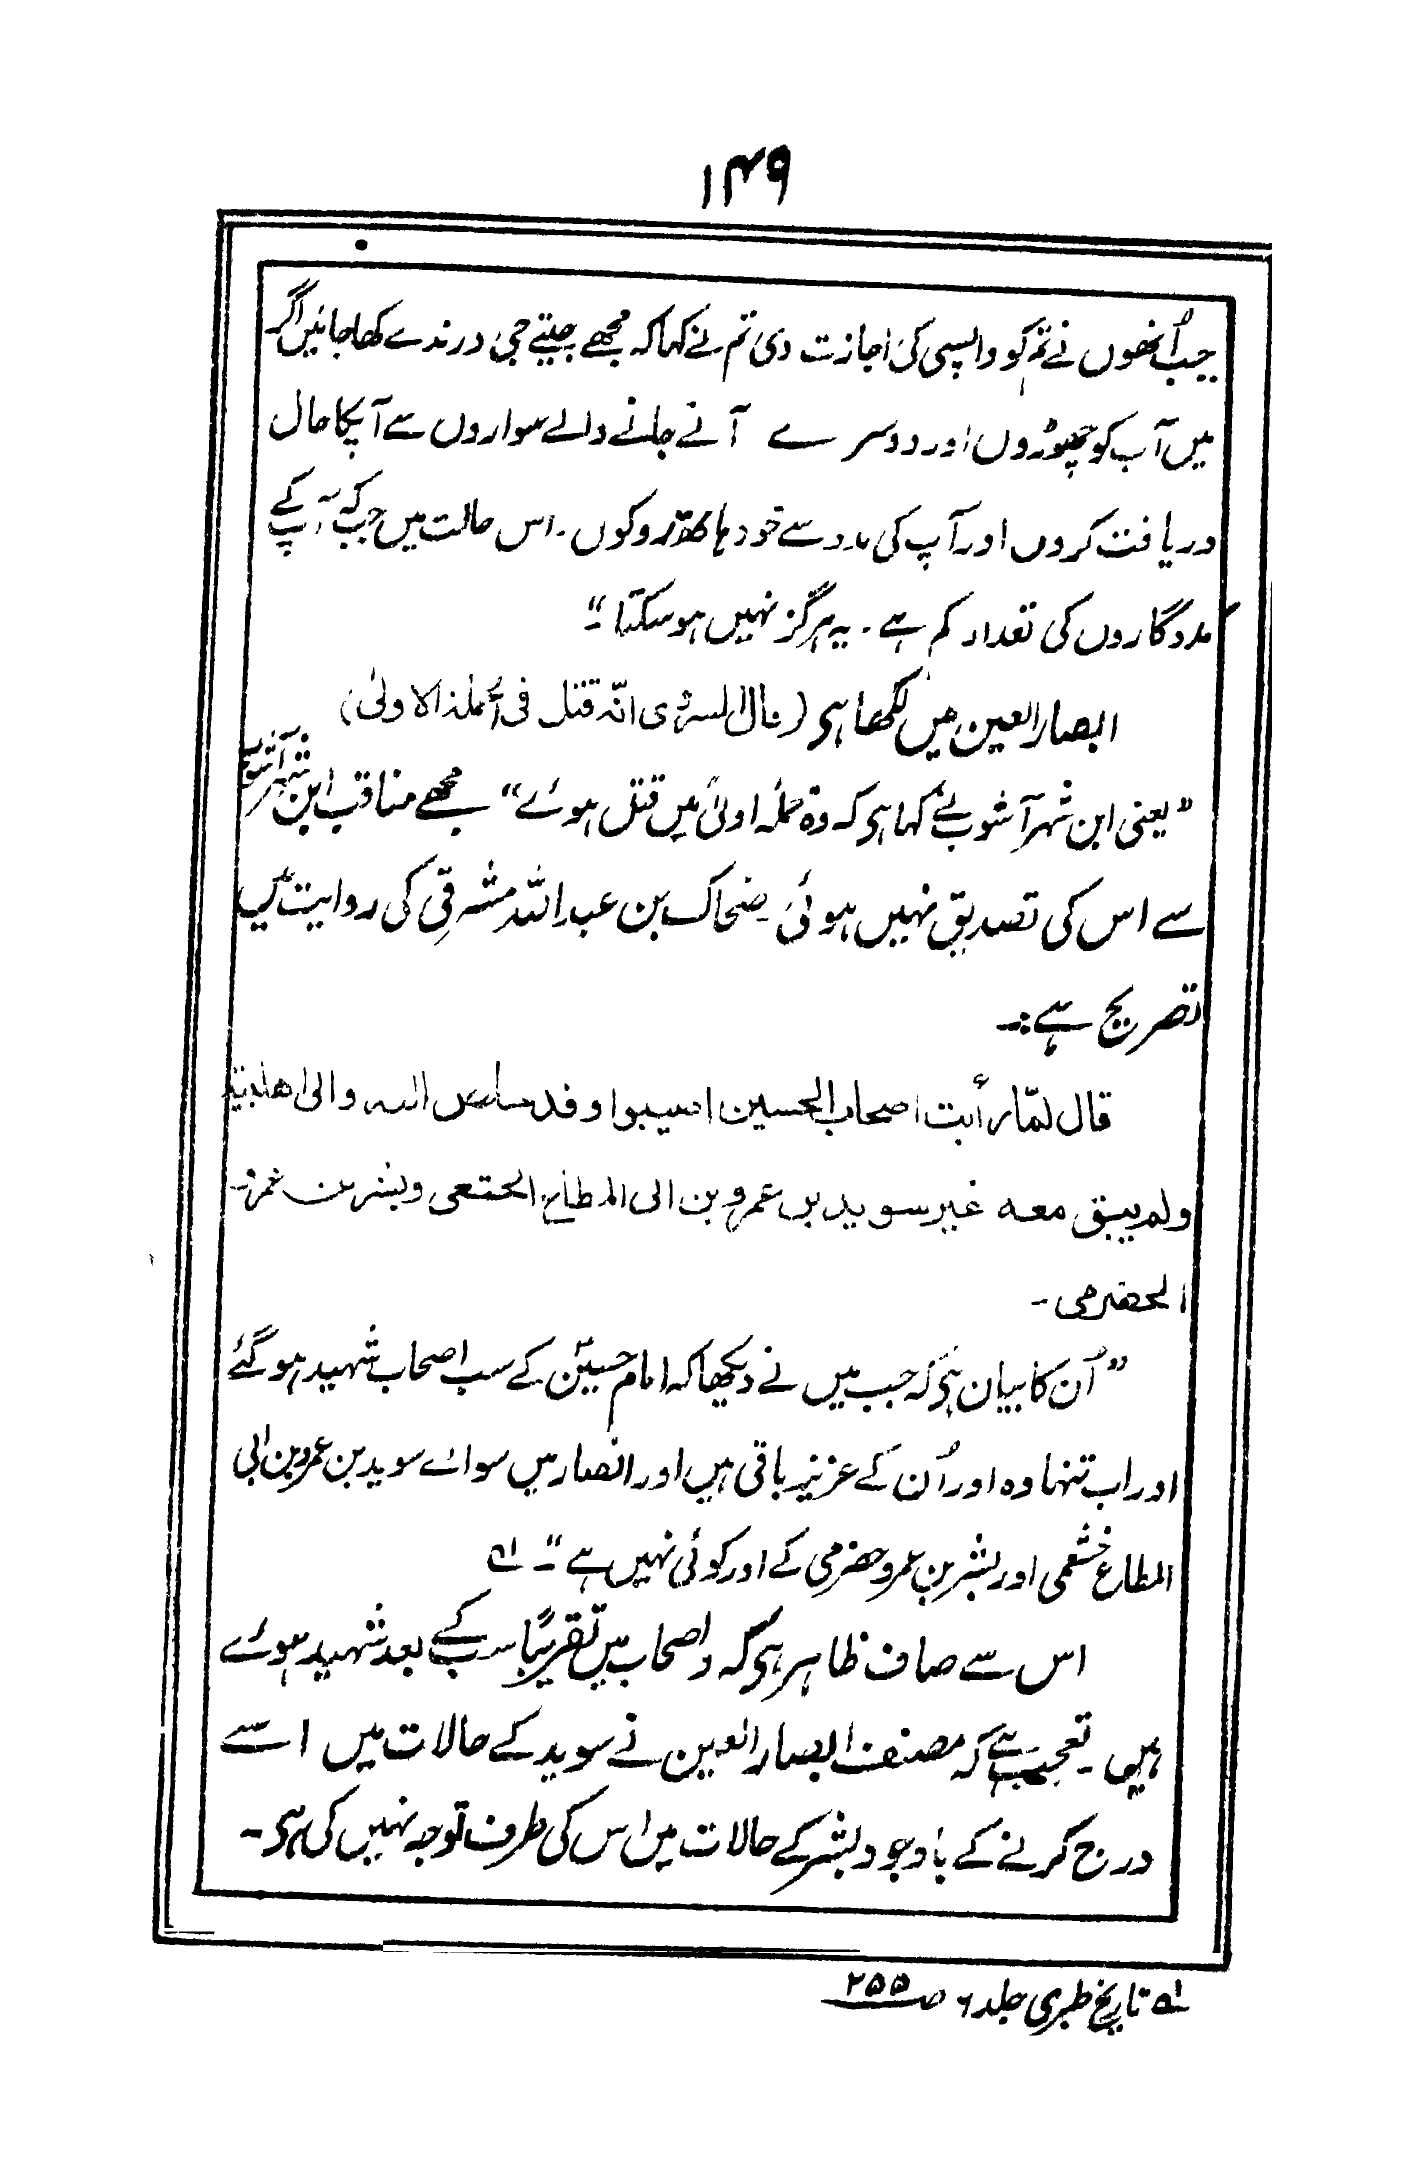 ۱۴۹
جب اُنھوں نے تم کو واپسی کی اجازت دی تم نے کہا کہ مجھے جیتے جی درندے کھا جائیں اگر
میں آپ کو چھوڑوں اور دوسرے آنے جانے والے سواروں سے آپکا حال
دریافت کروں اور آپ کی مدد سے خود ہاتھ روکوں۔ اس حالت میں جب کہ آپ کے
مددگاروں کی تعداد کم ہے۔ یہ ہرگز نہیں ہو سکتا"۔
ابصار العین میں لکھا ہی (قال السروی انّہ قتل فی الحملۃ الاولیٰ)
"یعنی ابن شہر آشوب نے کہا ہی کہ وہ حملہ اولیٰ میں قتل ہوئے" مجھے مناقب ابن شہر آشوب
سے اس کی تصدیق نہیں ہوئی۔ ضحاک بن عبداللہ مشرقی کی روایت میں
تصریح ہے:۔
قال لمّا رأیت اصحاب الحسین اصیبوا وقد خلص الیہ والی اھلبیتہ
ولم یبق معہ غیر سوید بن عمرو بن ابی المطاع الخثعمی وبشر بن عمرو
الحضرمی۔
"اُن کا بیان ہی کہ جب میں نے دیکھا کہ امام حسینؑ کے سب اصحاب شہید ہو گئے
اور اب تنہا وہ اور اُن کے عزیز باقی ہیں اور انصار میں سوائے سوید بن عمرو بن ابی
المطاع خثعمی اور بشر بن عمرو حضرمی کے اور کوئی نہیں ہے"۔ ۱ھ
اس سے صاف ظاہر ہی کہ وہ اصحاب میں تقریبًا سب کے بعد شہید ہوئے
ہیں۔ تعجب ہے کہ مصنف ابصار العین نے سوید کے حالات میں اسے
درج کرنے کے باوجود بشر کے حالات میں اس کی طرف توجہ نہیں کی ہی۔
۱ھ تاریخ طبری جلد ۶ صـ ۲۵۵